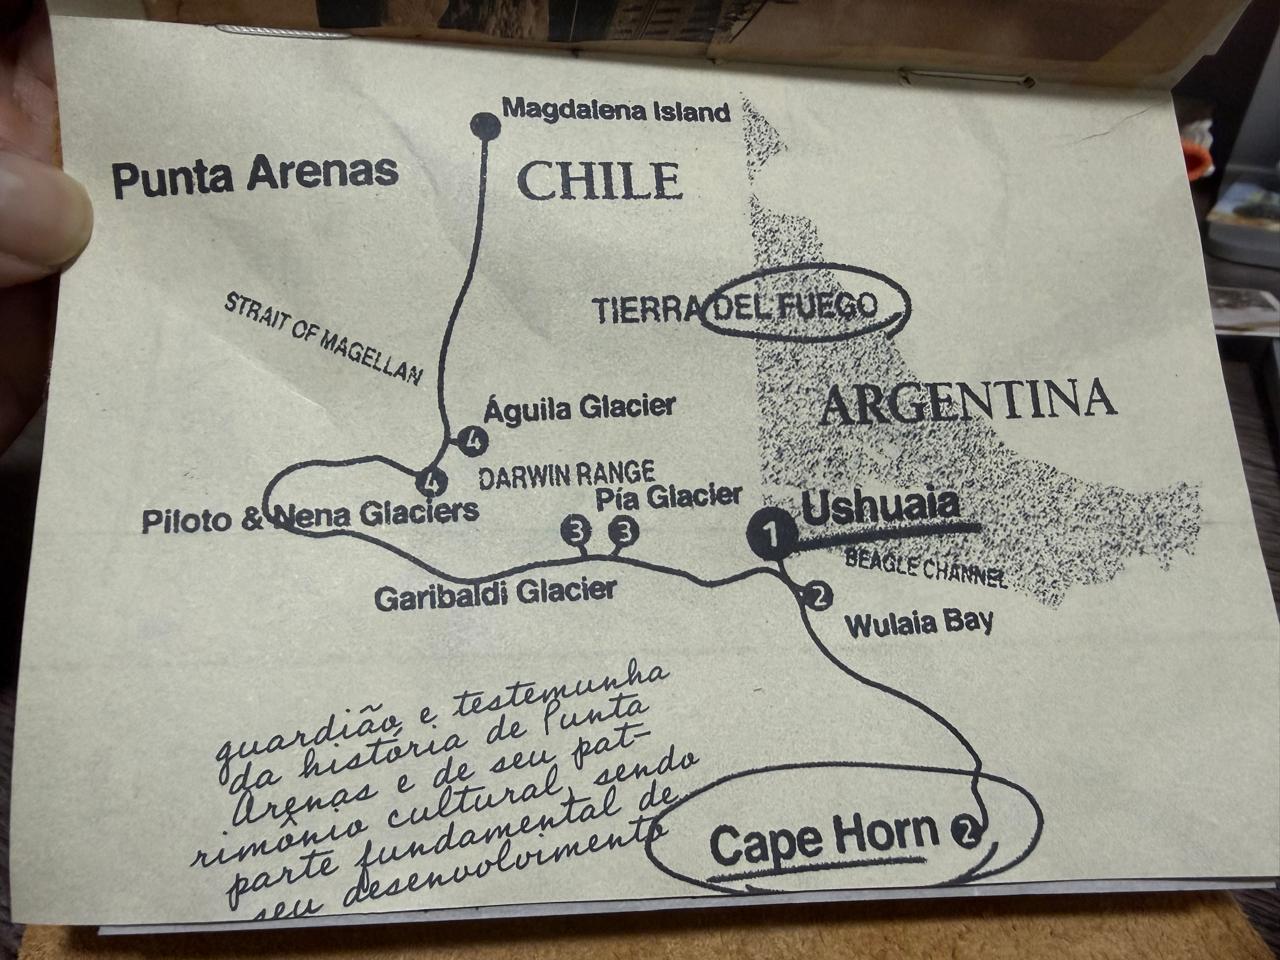 Magdalena Island
Punta Arenas
CHILE
STRAIT OF MAGELLAN
TIERRA DEL FUEGO
ARGENTINA
Águila Glacier
4
DARWIN RANGE
4
Piloto & Nena Glaciers
Pía Glacier
3
3
Ushuaia
1
BEAGLE CHANNEL
Garibaldi Glacier
2
Wulaia Bay
guardião e testemunha
da história de Punta
Arenas e de seu pat-
rimônio cultural, sendo
parte fundamental de
seu desenvolvimento
Cape Horn 2